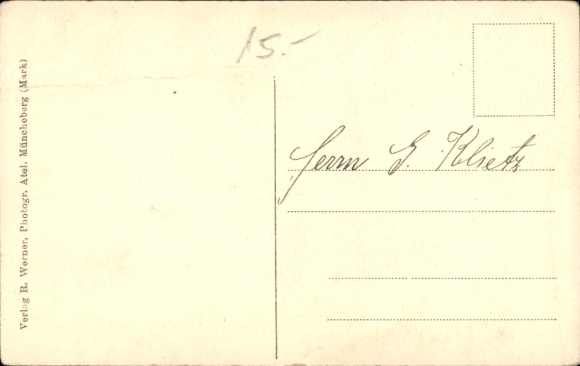 15.-
Herrn G. Klietz
Verlag R. Werner, Photogr. Atel. Müncheberg (Mark)